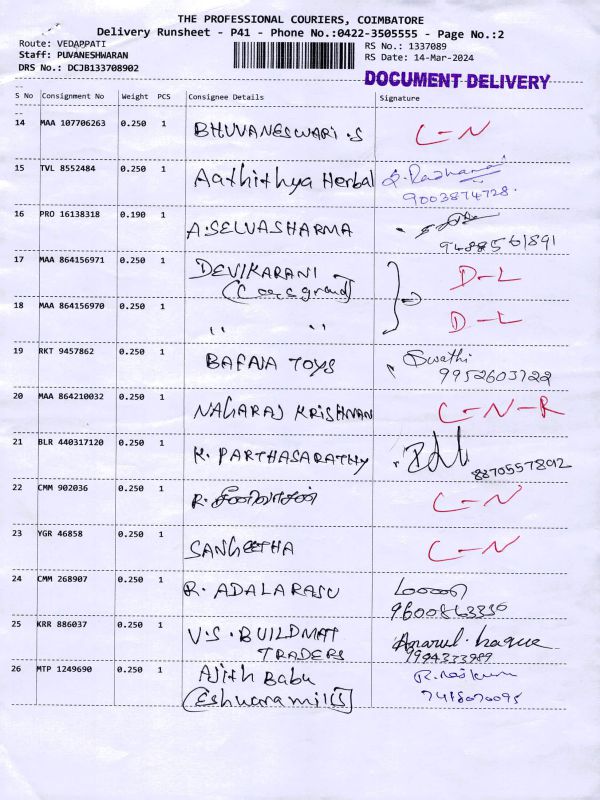 THE PROFESSIONAL COURIERS, COIMBATORE
Delivery Runsheet - P41 - Phone No.:0422-3505555 - Page No.:2
Route: VEDAPPATI
RS No.: 1337089
Staff: PUVANESHWARAN
RS Date: 14-Mar-2024
DRS No.: DCJB133708902
DOCUMENT DELIVERY
S No Consignment No Weight PCS Consignee Details Signature
14 MAA 107706263 0.250 1 BHUVANESWARI.S C-N
15 TVL 8552484 0.250 1 Aathithya Herbal
9003874728.
16 PRO 16138318 0.190 1 A.SELVASHARMA
9488561891
17 MAA 864156971 0.250 1 DEVIKARANI D-L
18 MAA 864156970 0.250 1 " " D-L
19 RKT 9457862 0.250 1 BAFANA TOYS Swathi
9952603722
20 MAA 864210032 0.250 1 NAGARAJ KRISHNAN C-N-R
21 BLR 440317120 0.250 1 K. PARTHASARATHY
22 CMM 902036 0.250 1 R. C-N
23 YGR 46858 0.250 1 SANGEETHA C-N
24 CMM 268907 0.250 1 R. ADALARASU
25 KRR 886037 0.250 1 V.S.BUILDMAT
TRADERS
9994333989
26 MTP 1249690 0.250 1 Ajith Babu
Eshwara mills